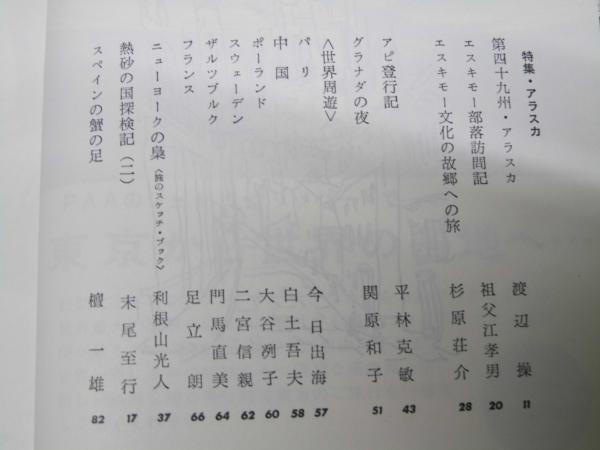 特集・アラスカ
第四十九州・アラスカ 渡辺操 11
エスキモー部落訪問記 祖父江孝男 20
エスキモー文化の故郷への旅 杉原荘介 28
アピ登行記 平林克敏 43
グラナダの夜 関原和子 51
<世界周遊>
パリ 今日出海 57
中国 白土吾夫 58
ポーランド 大谷冽子 60
スウェーデン 二宮信親 62
ザルツブルク 門馬直美 64
フランス 足立朗 66
ニューヨークの梟<旅のスケッチ・ブック> 利根山光人 37
熱砂の国探検記(二) 末尾至行 17
スペインの蟹の足 檀一雄 82